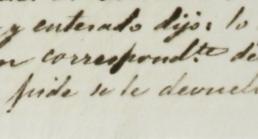 y enterado dijo: lo
n correspond.te de
pide se le devuel